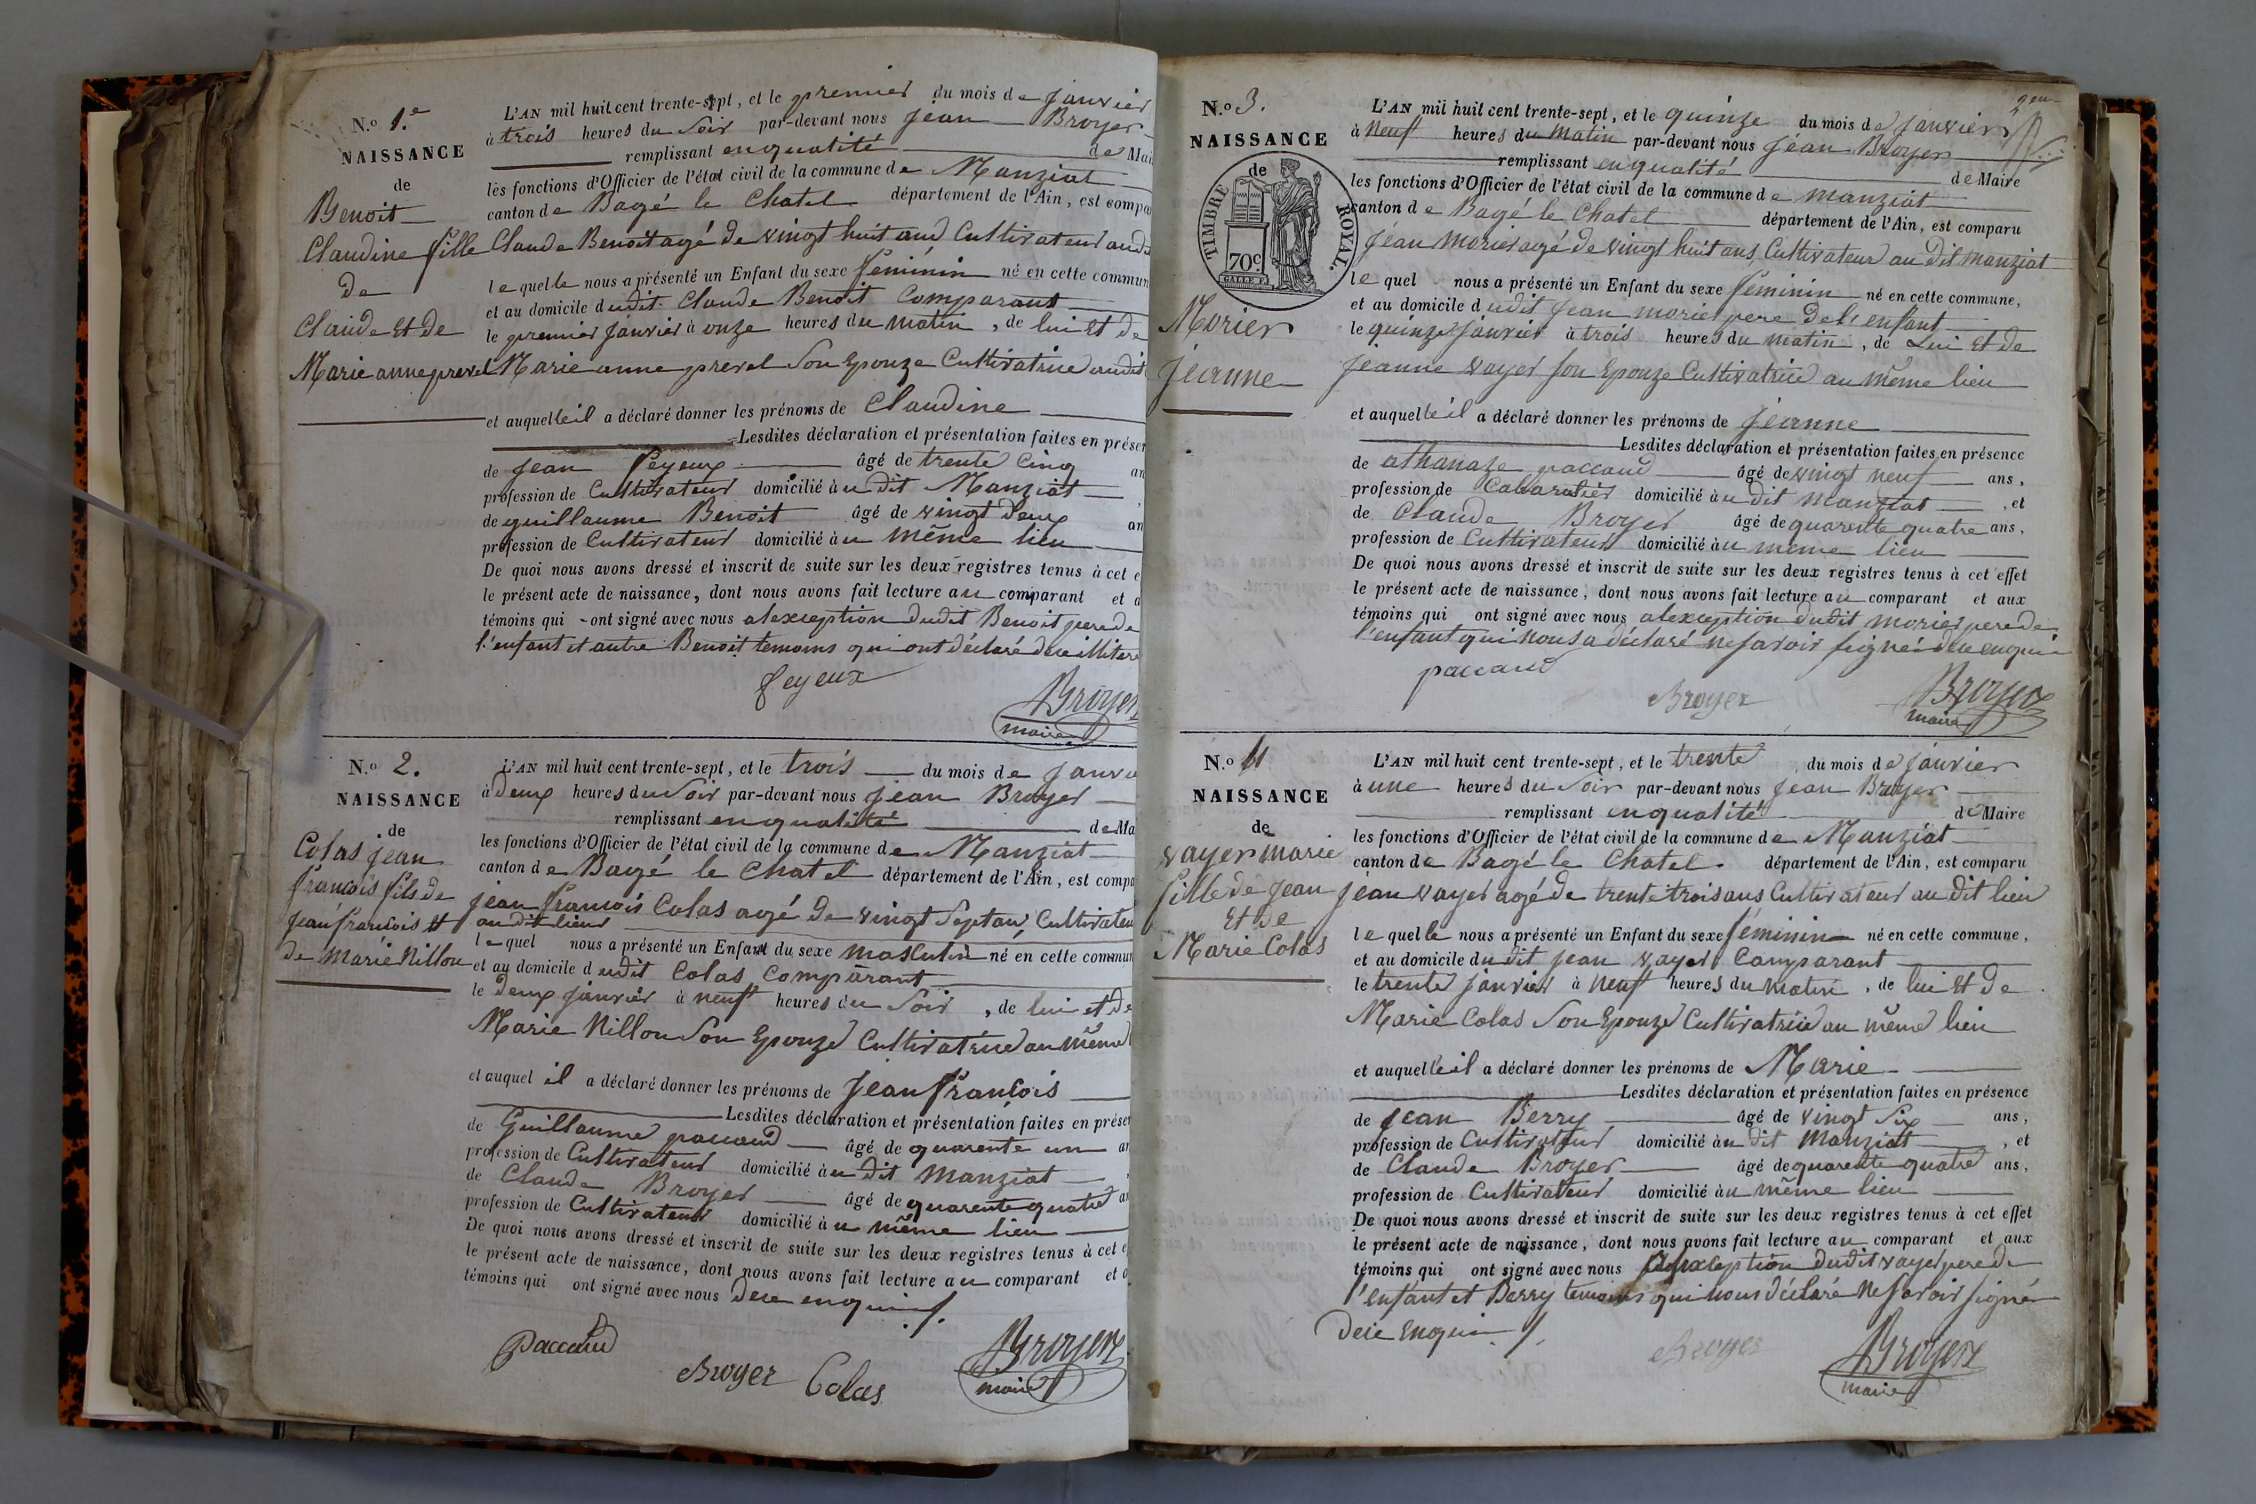 N.o 1.e
NAISSANCE
de
Benoit
Claudine fille
de
Claude et de
Marie anne prevel
L'AN mil huit cent trente-sept, et le premier du mois de janvier
à trois heures du Soir par-devant nous jean Broyer
remplissant en qualité de Mai
les fonctions d'Officier de l'état civil de la commune de Manziat
canton de Bagé le Chatel département de l'Ain, est compa
Claude Benoit agé de vingt huit ans Cultivateur audi
lequelle nous a présenté un Enfant du sexe féminin né en cette commun
et au domicile dudit Claude Benoit Comparant
le premier janvier à onze heures du matin, de lui et de
Marie anne prevel Son Epouze Cultivatrice audit
et auquelleil a déclaré donner les prénoms de Claudine
Lesdites déclaration et présentation faites en présen
de jean feyeux âgé de trente cinq an
profession de Cultivateur domicilié àu dit Manziat
de guillaume Benoit âgé de vingt deux an
profession de Cultivateur domicilié àu même lieu
De quoi nous avons dressé et inscrit de suite sur les deux registres tenus à cet e
le présent acte de naissance, dont nous avons fait lecture au comparant et a
témoins qui ont signé avec nous alexception dudit Benoit pere de
l'enfant et autre Benoit temoins qui ont déclaré
feyeux
Broyer
maire
N.o 2.
NAISSANCE
de
Colas jean
françois fils de
jean françois et
de Marie Nillon
L'AN mil huit cent trente-sept, et le trois du mois de janvie
à Deux heures du Soir par-devant nous jean Broyer
remplissant en qualité de Ma
les fonctions d'Officier de l'état civil de la commune de Manziat
canton de Bagé le Chatel département de l'Ain, est compa
jean françois Colas agé de vingt Sept an Cultivateu
au dit lieu
lequel nous a présenté un Enfant du sexe masculin né en cette commun
et au domicile dudit Colas Comparant
le Deux janvier à neuf heures du Soir, de lui et de
Marie Nillon Son Epouze Cultivatrice au même
et auquel il a déclaré donner les prénoms de Jean françois
Lesdites déclaration et présentation faites en présen
de Guillaume paccaud âgé de quarente un an
profession de Cultivateur domicilié àu dit Manziat
de Claude Broyer âgé de quarente quatre an
profession de Cultivateur domicilié àu même lieu
De quoi nous avons dressé et inscrit de suite sur les deux registres tenus à cet e
le présent acte de naissance, dont nous avons fait lecture au comparant et a
témoins qui ont signé avec nous Dece enquis
Paccaud
Broyer
Colas
Broyer
maire
N.o 3.
NAISSANCE
de
TIMBRE ROYAL.
70c
Morier
jeanne
L'AN mil huit cent trente-sept, et le quinze du mois de janvier
à neuf heures du matin par-devant nous jean Broyer
remplissant en qualité de Maire
les fonctions d'Officier de l'état civil de la commune de manziat
canton de Bagé le Chatel département de l'Ain, est comparu
jean morier agé de vingt huit ans Cultivateur au dit manziat
lequel nous a présenté un Enfant du sexe féminin né en cette commune,
et au domicile dudit jean morier pere de l'enfant
le quinze janvier à trois heures du matin, de Lui et de
jeanne vayer son Epouze Cultivatrice au même lieu
et auquelleil a déclaré donner les prénoms de jeanne
Lesdites déclaration et présentation faites en présence
de athanaze paccaud âgé de vingt neuf ans,
profession de Cabaratier domicilié àu dit manziat, et
de Claude Broyer âgé de quarente quatre ans,
profession de Cultivateur domicilié àu même lieu
De quoi nous avons dressé et inscrit de suite sur les deux registres tenus à cet effet
le présent acte de naissance, dont nous avons fait lecture au comparant et aux
témoins qui ont signé avec nous alexception dudit morier pere de
l'enfant qui nous a déclaré ne savoir signé dece enquis
paccaud
Broyer
Broyer
maire
N.o 4
NAISSANCE
de
vayer marie
fille de jean
Et de
Marie Colas
L'AN mil huit cent trente-sept, et le trente du mois de janvier
à une heures du Soir par-devant nous jean Broyer
remplissant en qualité de Maire
les fonctions d'Officier de l'état civil de la commune de Manziat
canton de Bagé le Chatel. département de l'Ain, est comparu
jean vayer agé de trente trois ans Cultivateur au dit lieu
lequelle nous a présenté un Enfant du sexe féminin né en cette commune,
et au domicile dudit jean vayer Comparant
le trente janvier à neuf heures du matin, de lui et de
Marie Colas Son Epouze Cultivatrice au même lieu
et auquelleil a déclaré donner les prénoms de Marie
Lesdites déclaration et présentation faites en présence
de jean Berry âgé de vingt Six ans,
profession de Cultivateur domicilié àu dit Manziat, et
de Claude Broyer âgé de quarente quatre ans,
profession de Cultivateur domicilié àu même lieu
De quoi nous avons dressé et inscrit de suite sur les deux registres tenus à cet effet
le présent acte de naissance, dont nous avons fait lecture au comparant et aux
témoins qui ont signé avec nous alexception dudit vayer pere de
l'enfant et Berry temoins qui nous déclaré ne savoir signé
Dece enquis
Broyer
Broyer
maire